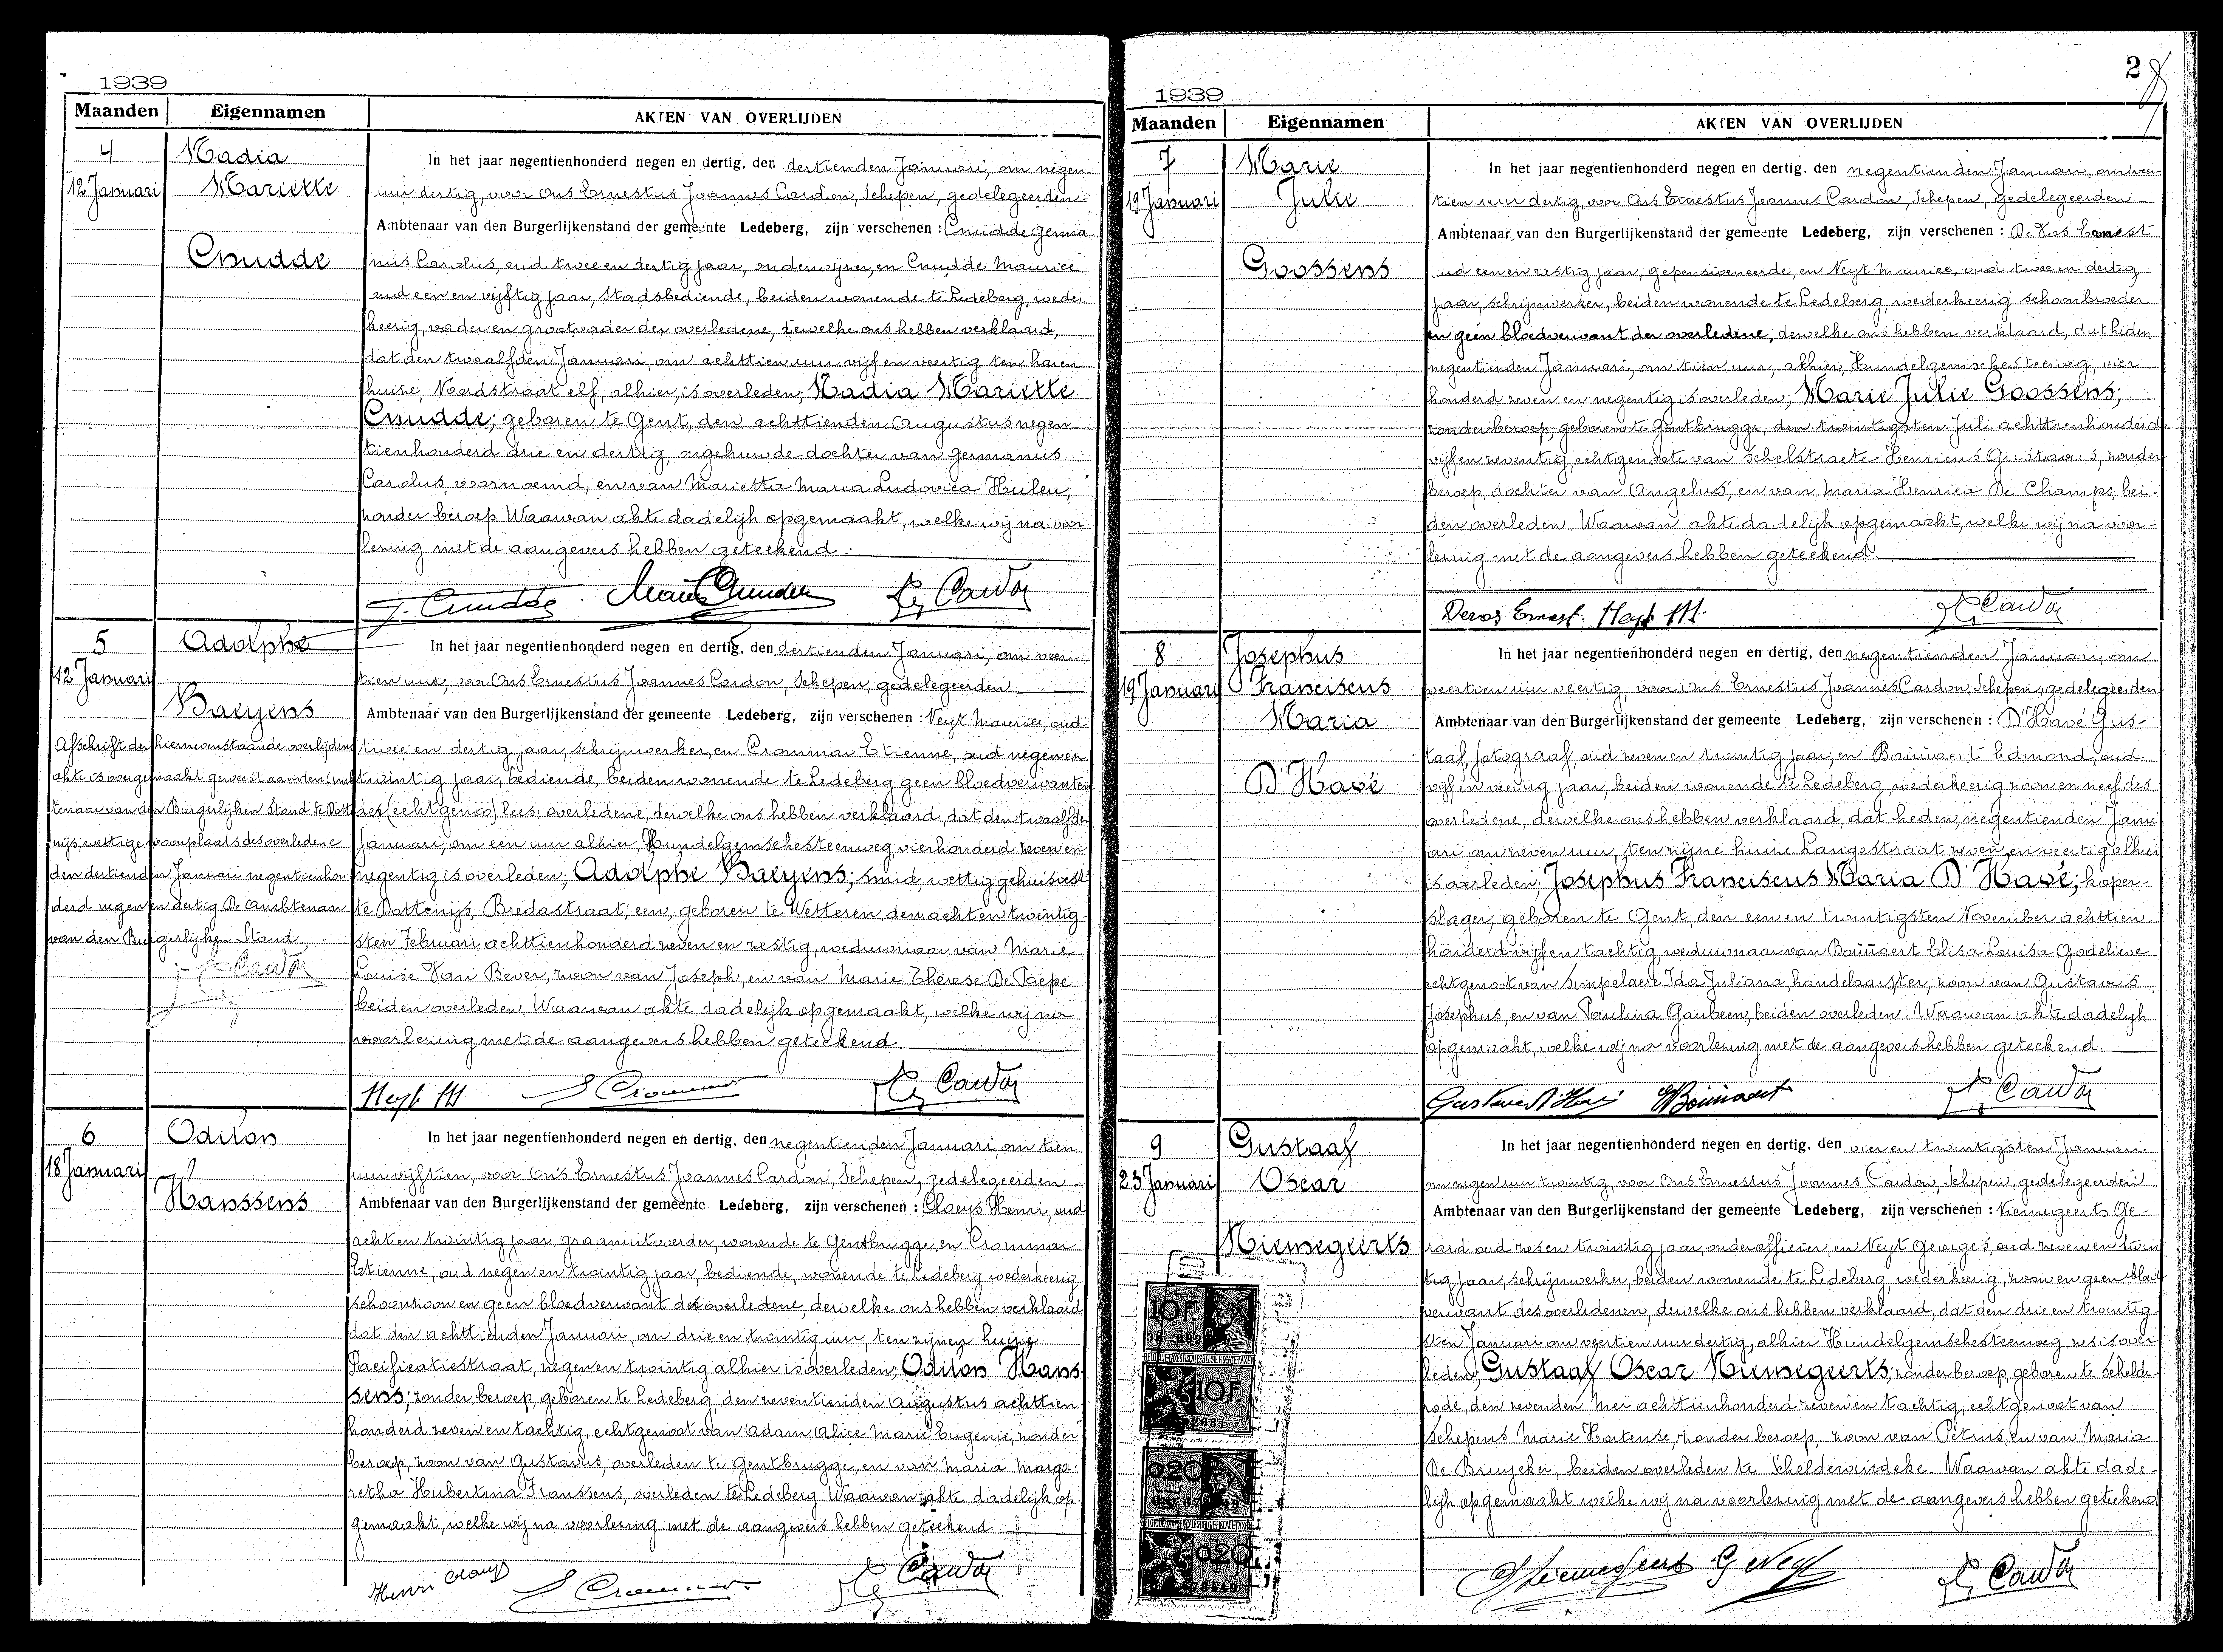 1939
Maanden Eigennamen AKTEN VAN OVERLIJDEN
4
12 Januari
Nadia
Mariette
Cnudde
In het jaar negentienhonderd negen en dertig, den dertienden Januari, om negen
uur dertig, voor Ons Ernestus Joannes Cardon, Schepen, gedelegeerden
Ambtenaar van den Burgerlijkenstand der gemeente Ledeberg, zijn verschenen: Cnudde Germa
nus Carolus, oud twee en dertig jaar, onderwijzer, en Cnudde Maurice
oud een en vijftig jaar, Stadsbediende, beiden wonende te Ledeberg, weder
keerig, vader en grootvader der overledene, dewelke ons hebben verklaard,
dat den twaalfden Januari, om achttien uur vijf en veertig ten haren
huize, Noordstraat elf, alhier, is overleden; Nadia Mariette
Cnudde; geboren te Gent, den achttienden Augustus negen
tienhonderd drie en dertig, ongehuwde dochter van Germanus
Carolus, voornoemd, en van Marietta Maria Ludovica Huleu,
zonder beroep. Waarvan akte dadelijk opgemaakt, welke wij na voor
lezing met de aangevers hebben geteekend.
G. Cnudde. Maur Cnudde E. Cardon
5
12 Januari
Adolphe
Baeyens
Afschrift der hiernevenstaande overlijdens
akte is overgemaakt geweest aan den Amb
tenaar van den Burgerlijken Stand te Dotte
nijs, wettige woonplaats des overledene
den dertienden Januari negentienhon
derd negen en dertig. De Ambtenaar
van den Burgerlijken Stand,
E. Cardon
In het jaar negentienhonderd negen en dertig, den dertienden Januari, om veer
tien uur, voor Ons Ernestus Joannes Cardon, Schepen, gedelegeerden
Ambtenaar van den Burgerlijkenstand der gemeente Ledeberg, zijn verschenen: Neyt Maurice, oud
twee en dertig jaar, schrijnwerker, en Crommar Etienne, oud negen en
twintig jaar, bediende, beiden wonende te Ledeberg geen bloedverwanten
des (echtgenoo) lees: overledene, dewelke ons hebben verklaard, dat den twaalfden
Januari, om een uur alhier, Hundelgemschesteenweg, vierhonderd zeven en
negentig is overleden; Adolphe Baeyens; smid, wettig gehuisvest
te Dottenijs, Bredastraat, een, geboren te Wetteren, den acht en twintig
sten Februari achttienhonderd zeven en zestig, weduwnaar van Marie
Louise Van Bever, zoon van Joseph, en van Marie Therese De Paepe
beiden overleden. Waarvan akte dadelijk opgemaakt, welke wij na
voorlezing met de aangevers hebben geteekend
Neyt M E Crommar E. Cardon
6
18 Januari
Odilon
Hanssens
In het jaar negentienhonderd negen en dertig, den negentienden Januari, om tien
uur vijftien, voor Ons Ernestus Joannes Cardon, Schepen, gedelegeerden
Ambtenaar van den Burgerlijkenstand der gemeente Ledeberg, zijn verschenen: Claeys Henri, oud
acht en twintig jaar, graanuitvoerder, wonende te Gentbrugge, en Crommar
Etienne, oud negen en twintig jaar, bediende, wonende te Ledeberg wederkeerig
schoonzoon en geen bloedverwant des overledene, dewelke ons hebben verklaard
dat den achttienden Januari, om drie en twintig uur, ten zijnen huize
Pacificatiestraat, negen en twintig alhier is overleden; Odilon Hans
sens; zonder beroep, geboren te Ledeberg, den zeventienden Augustus achttien
honderd zeven en tachtig, echtgenoot van Adam Alice Marie Eugenie, zonder
beroep, zoon van Gustavus, overleden te Gentbrugge, en van Maria Marga
retha Hubertina Franssens, overleden te Ledeberg. Waarvan akte dadelijk op
gemaakt, welke wij na voorlezing met de aangevers hebben geteekend
Henri Claeys E Crommar E. Cardon
2
1939
Maanden Eigennamen AKTEN VAN OVERLIJDEN
7
19 Januari
Marie
Julie
Goossens
In het jaar negentienhonderd negen en dertig, den negentienden Januari, om veer
tien uur dertig, voor Ons Ernestus Joannes Cardon, Schepen, gedelegeerden
Ambtenaar van den Burgerlijkenstand der gemeente Ledeberg, zijn verschenen: De Vos Ernest
oud een en zestig jaar, gepensioneerde, en Neyt Maurice, oud twee en dertig
jaar, schrijnwerker, beiden wonende te Ledeberg, wederkeerig schoonbroeder
en geen bloedverwant der overledene, dewelke ons hebben verklaard, dat heden
negentienden Januari, om tien uur, alhier, Hundelgemschesteenweg, vier
honderd zeven en negentig is overleden; Marie Julie Goossens;
zonder beroep, geboren te Gentbrugge, den twintigsten Juli achttienhonderd
vijf en zeventig, echtgenoote van Schelstraete Henricus Gustavus, zonder
beroep, dochter van Angelus, en van Maria Henrica De Champs, bei
den overleden. Waarvan akte dadelijk opgemaakt, welke wij na voor
lezing met de aangevers hebben geteekend.
Devos Ernest. Neyt M. E. Cardon
8
19 Januari
Josephus
Franciscus
Maria
D'Havé
In het jaar negentienhonderd negen en dertig, den negentienden Januari, om
veertien uur veertig, voor Ons Ernestus Joannes Cardon, Schepen, gedelegeerden
Ambtenaar van den Burgerlijkenstand der gemeente Ledeberg, zijn verschenen: D'Havé Gus
taaf, fotograaf, oud zeven en twintig jaar, en Boiinaert Edmond, oud
vijf en veertig jaar, beiden wonende te Ledeberg, wederkeerig zoon en neef des
overledene, dewelke ons hebben verklaard, dat heden, negentienden Janu
ari om zeven uur, ten zijne huize Langestraat zeven en veertig alhier
is overleden; Josephus Franciscus Maria D'Havé; koper
slager, geboren te Gent, den een en twintigsten November achttien
honderd vijf en tachtig, weduwnaar van Boiinaert Elisa Louisa Godelieve
echtgenoot van Simpelaere Ida Juliana, handelaarster, zoon van Gustavus
Josephus, en van Paulina Gaubeen, beiden overleden. Waarvan akte dadelijk
opgemaakt, welke wij na voorlezing met de aangevers hebben geteekend.
Gustave D'Havé E Boiinaert E. Cardon
9
23 Januari
Gustaaf
Oscar
Niemegeerts
In het jaar negentienhonderd negen en dertig, den vier en twintigsten Januari
om negen uur twintig, voor Ons Ernestus Joannes Cardon, Schepen, gedelegeerden
Ambtenaar van den Burgerlijkenstand der gemeente Ledeberg, zijn verschenen: Niemegeerts Ge
rard oud zes en twintig jaar, onderofficier, en Neyt Georges, oud zeven en twin
tig jaar, schrijnwerker, beiden wonende te Ledeberg, wederkeerig, zoon en geen bloed
verwant des overledenen, dewelke ons hebben verklaard, dat den drie en twintig
sten Januari om veertien uur dertig, alhier Hundelgemschesteenweg, zes is over
leden; Gustaaf Oscar Niemegeerts; zonder beroep, geboren te Schelde
rode, den zevenden Mei achttienhonderd zeven en tachtig, echtgenoot van
Schepens Marie Hortense, zonder beroep, zoon van Petrus, en van Maria
De Bruycker, beiden overleden te Scheldewindeke. Waarvan akte dade
lijk opgemaakt welke wij na voorlezing met de aangevers hebben geteekend
G Niemegeers G Neyt E. Cardon
10F
10F.
0.20
0.20